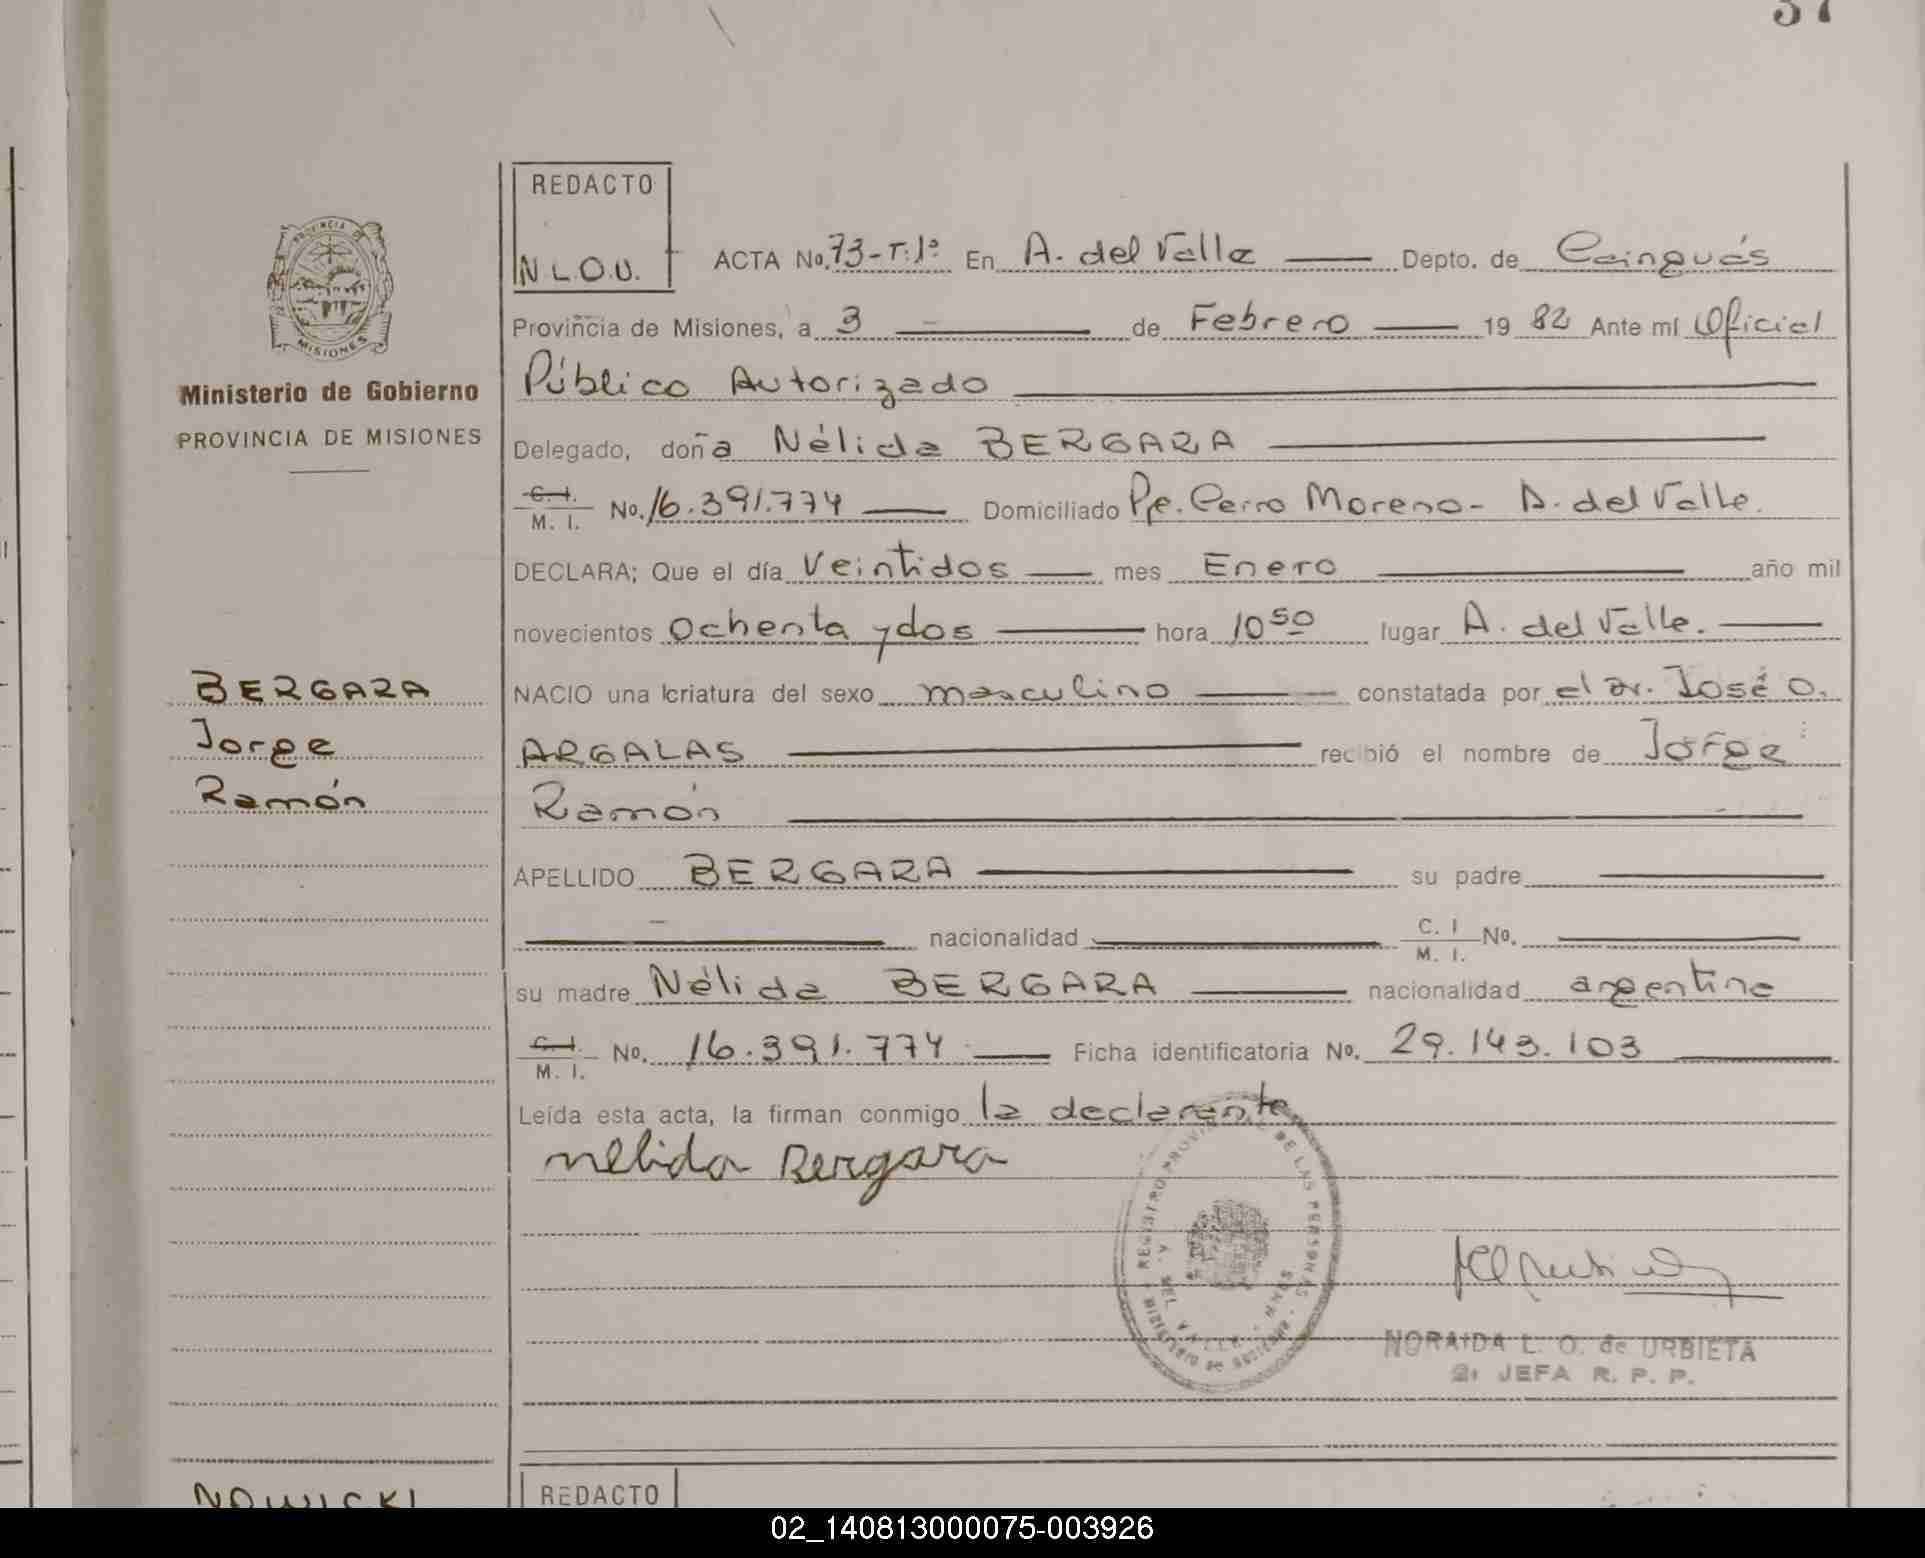 37
REDACTO
N L.O.U.
ACTA No. 73-T:1º En A. del Valle Depto. de Cainguás
Provincia de Misiones, a 3 de Febrero 19 82 Ante mí Oficial
Público Autorizado
Delegado, doña Nélida BERGARA
C. I. M. I. No. 16.391.774 Domiciliado Pje. Cerro Moreno - A. del Valle.
DECLARA; Que el día Veintidos mes Enero año mil
novecientos Ochenta y dos hora 10 50 lugar A. del Valle.
NACIO una criatura del sexo masculino constatada por el Dr. José O.
ARGALAS recibió el nombre de Jorge
Ramón
APELLIDO BERGARA su padre
nacionalidad C. I M. I. No.
su madre Nélida BERGARA nacionalidad argentina
C. I. M. I. No. 16.391.774 Ficha identificatoria No. 29.143.103
Leída esta acta, la firman conmigo la declarante
nelida Bergara
REGISTRO PROVINCIAL DE LAS PERSONAS
NORAIDA L. O. de URBIETA
2ª JEFA R. P. P.
PROVINCIA DE
MISIONES
Ministerio de Gobierno
PROVINCIA DE MISIONES
BERGARA
Jorge
Ramón
NOWICKI
REDACTO
02_140813000075-003926